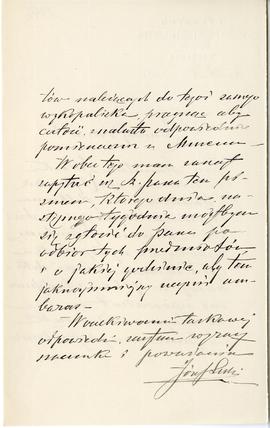 tów należących do tegoż samego
wykopaliska, pragnąc aby
całość, znalazła odpowiednie
pomieszczenie w Muzeum.
Wobec tego mam zaszczyt
zapytać się Sz. pana tem pi-
smem, którego dnia na-
stępnego tygodnia mógłbym
się zgłosić do pana po
odbiór tych przedmiotów
i o jakiej godzinie, aby ten
jaknajmniejszy sprawić am-
baras –
W oczekiwaniu łaskawej
odpowiedzi, zostaję z wyrazy
szacunku i poważania
Józef